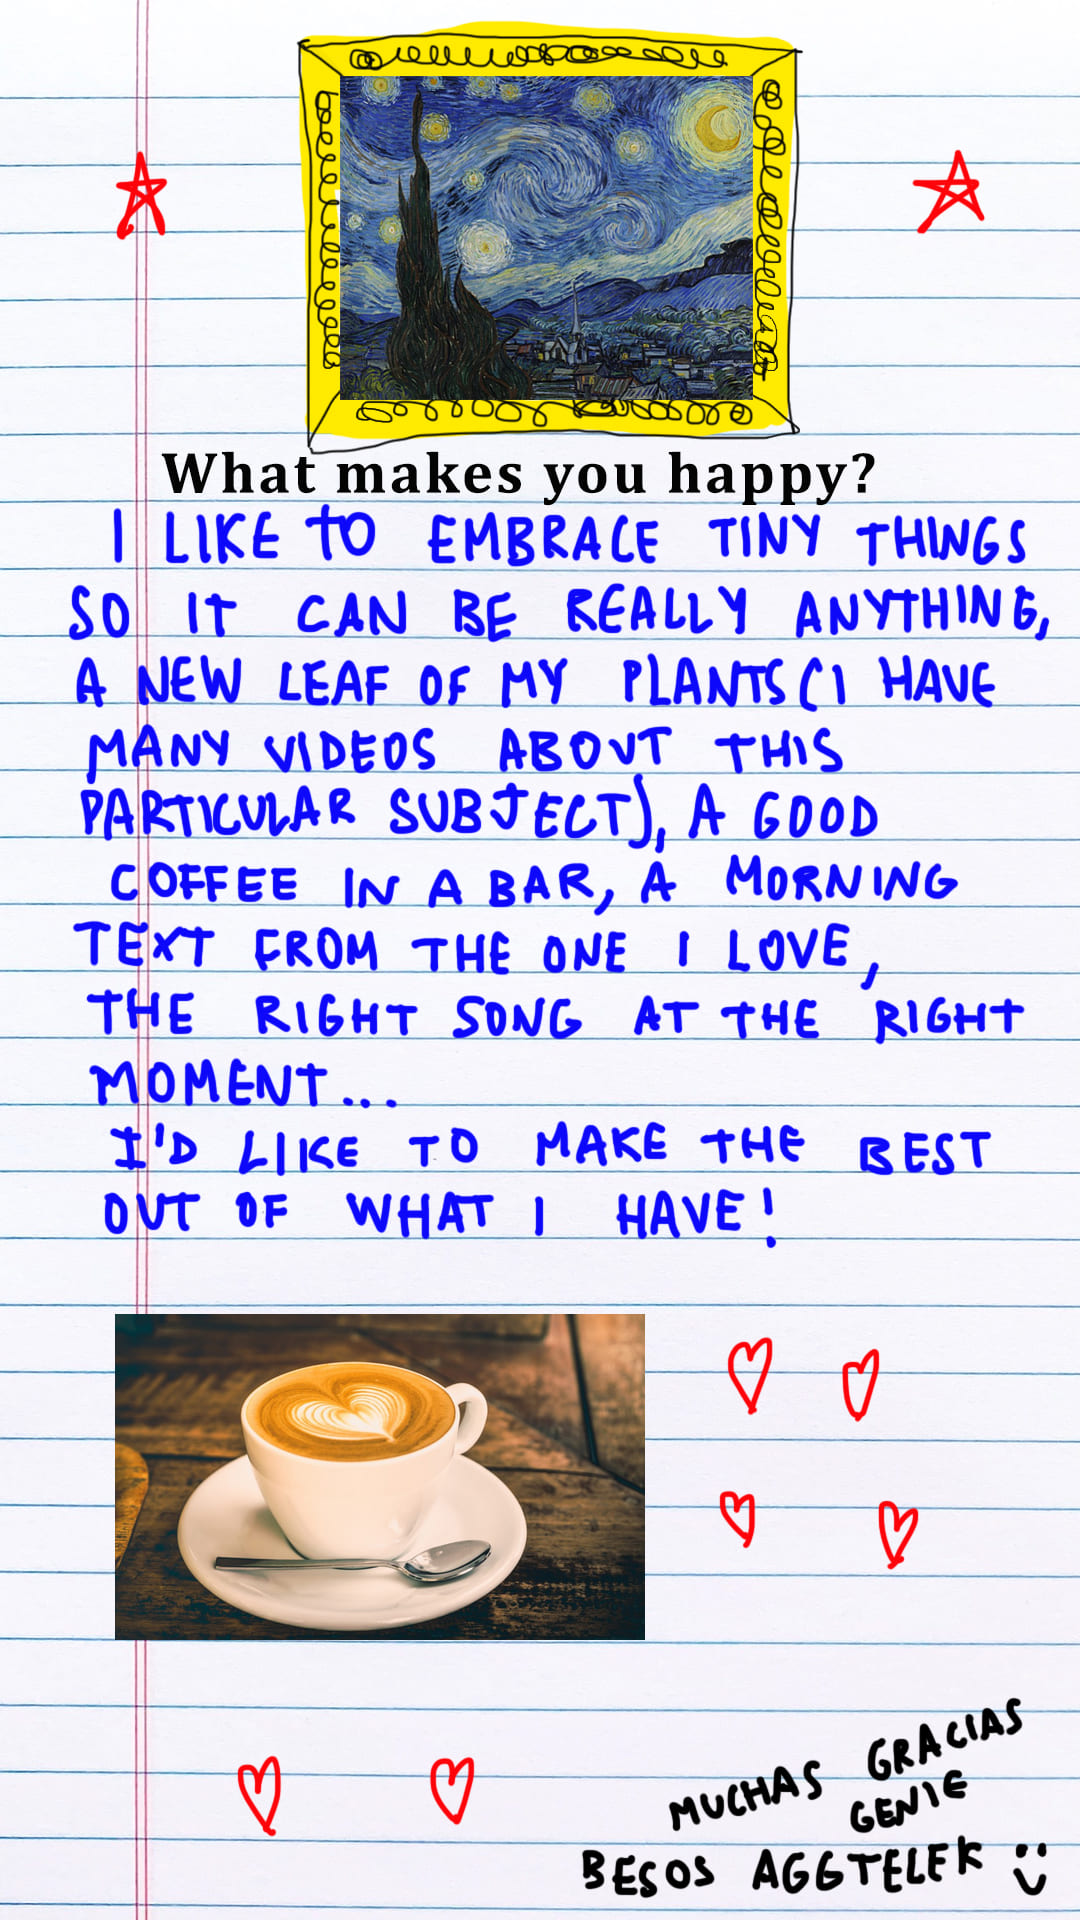 What makes you happy?
I LIKE TO EMBRACE TINY THINGS
SO IT CAN BE REALLY ANYTHING,
A NEW LEAF OF MY PLANTS (I HAVE
MANY VIDEOS ABOUT THIS
PARTICULAR SUBJECT), A GOOD
COFFEE IN A BAR, A MORNING
TEXT FROM THE ONE I LOVE,
THE RIGHT SONG AT THE RIGHT
MOMENT...
I'D LIKE TO MAKE THE BEST
OUT OF WHAT I HAVE!
MUCHAS GRACIAS
GENIE
BESOS AGGTELEK :)